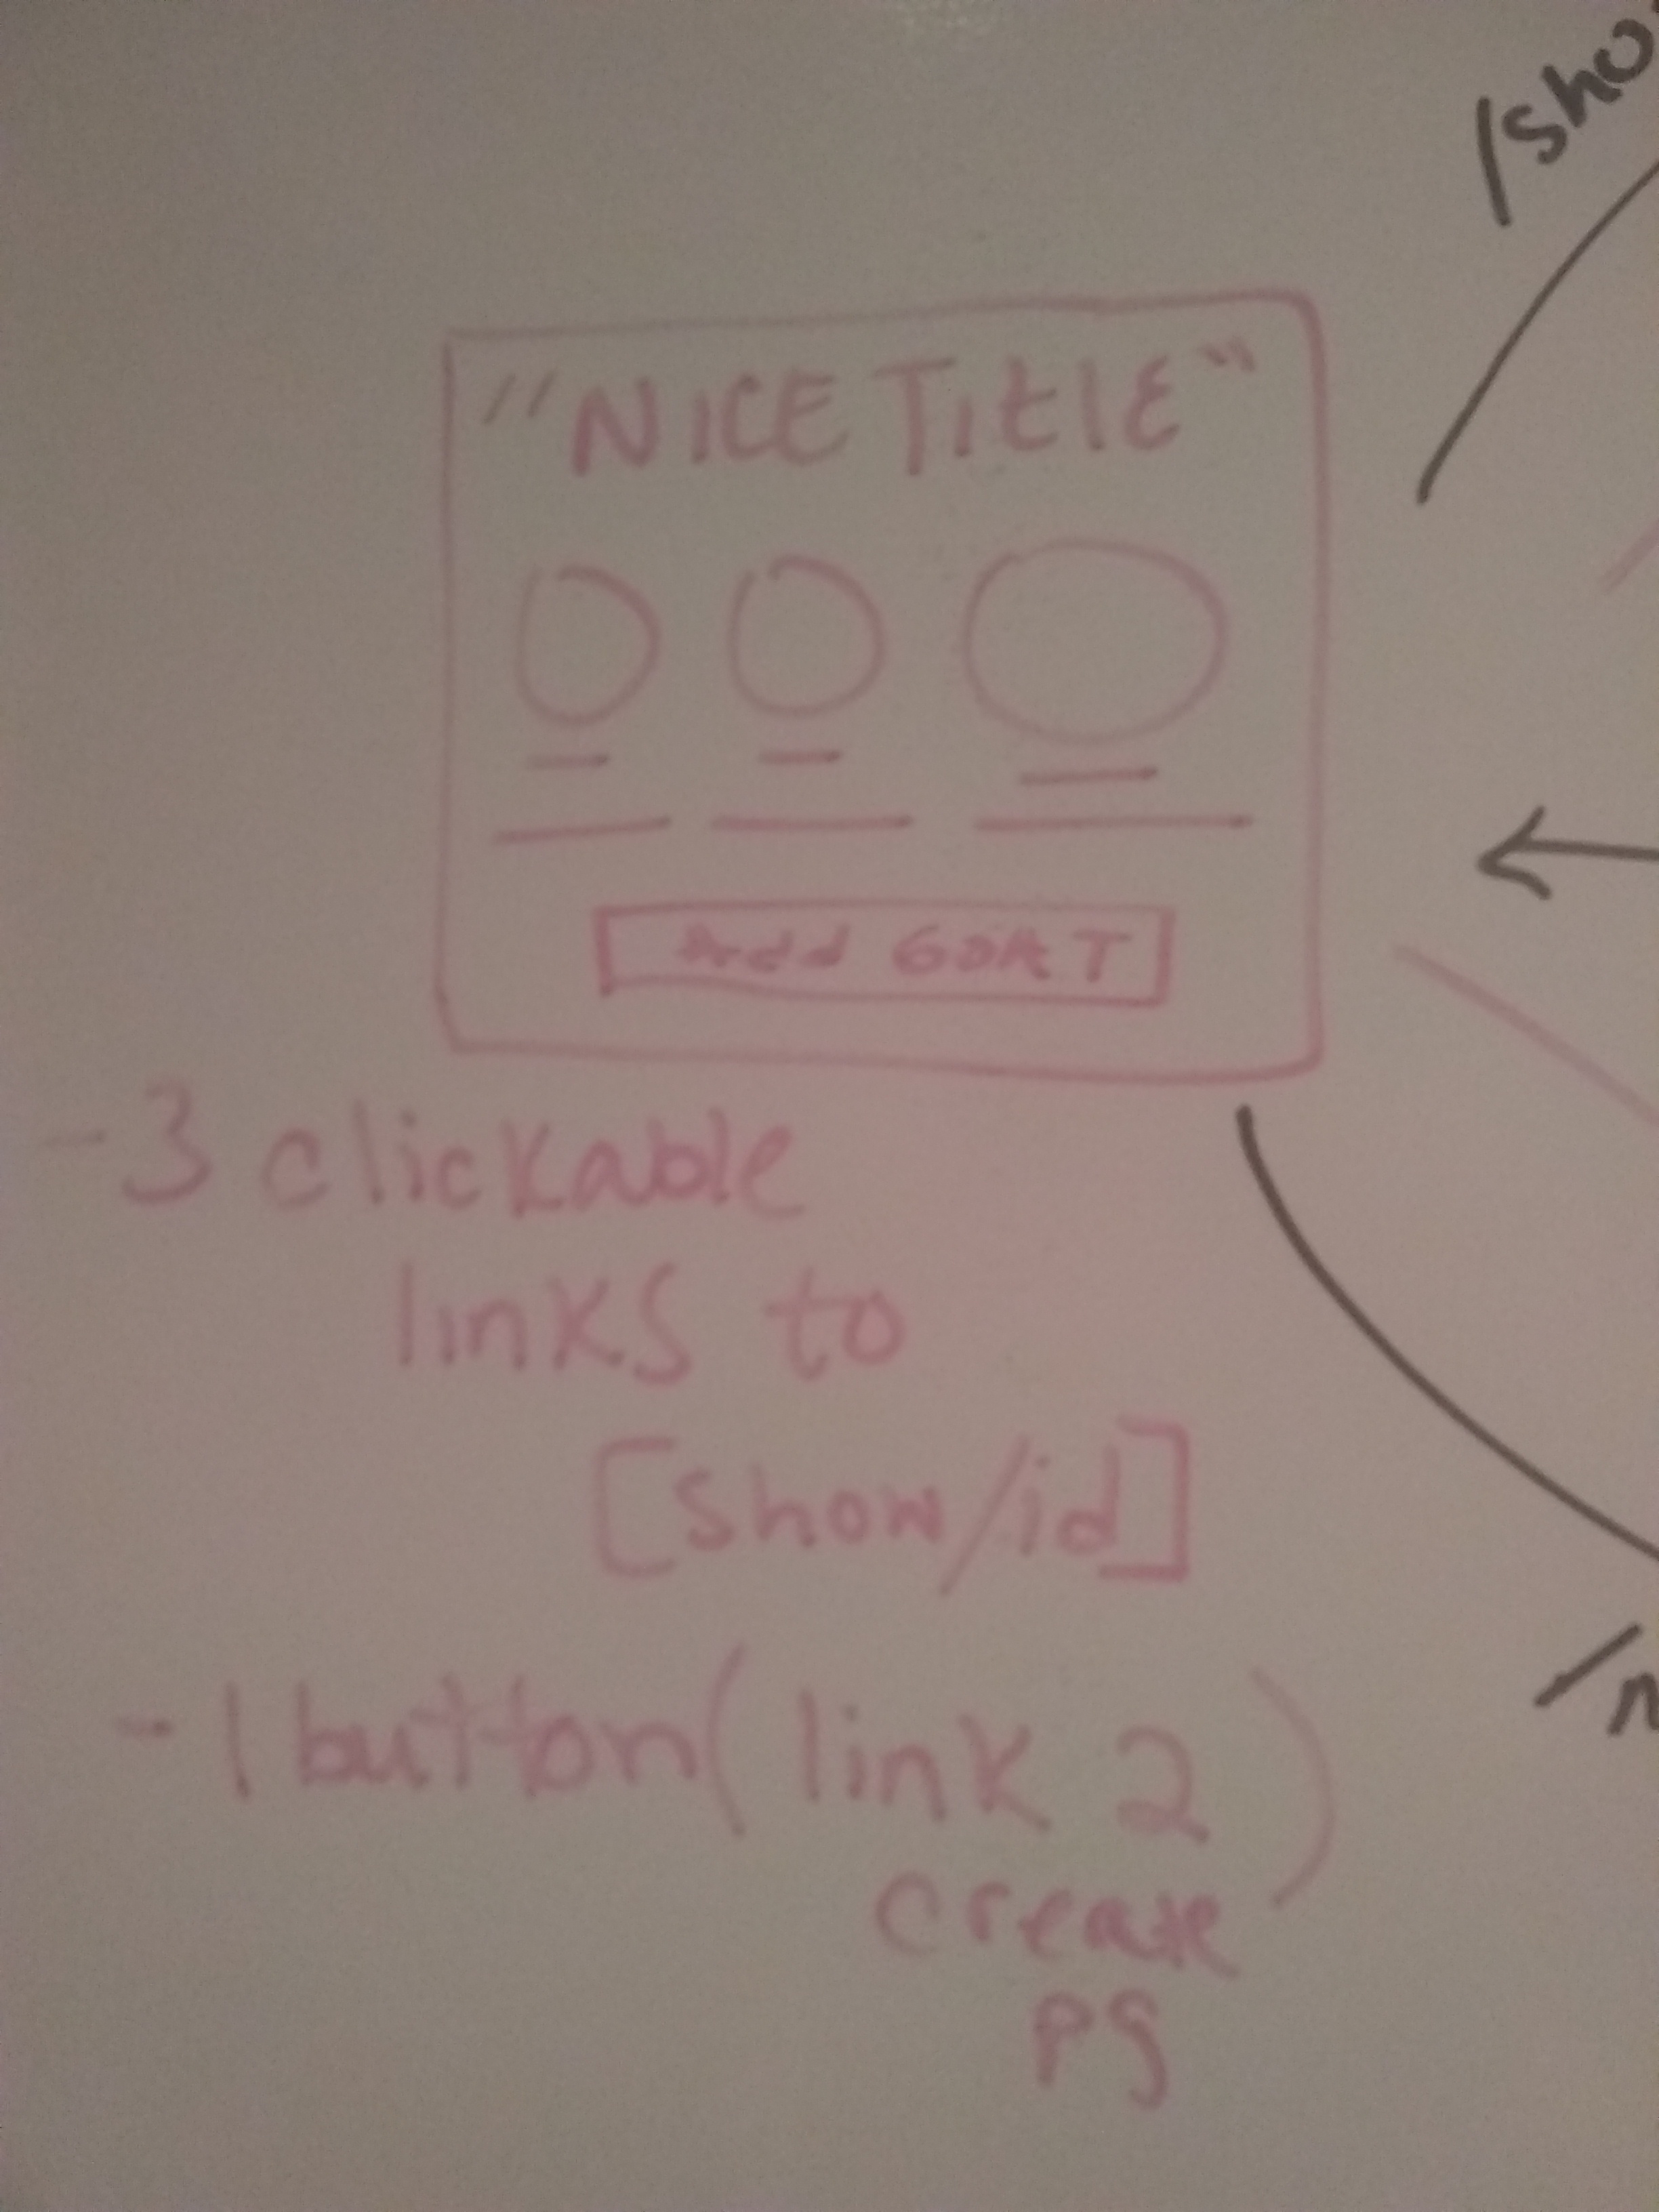 /sho
"NICE TitlE"
Add GOAT
-3 clickable
links to
[show/id]
-1 button (link 2
create
pg)
/n